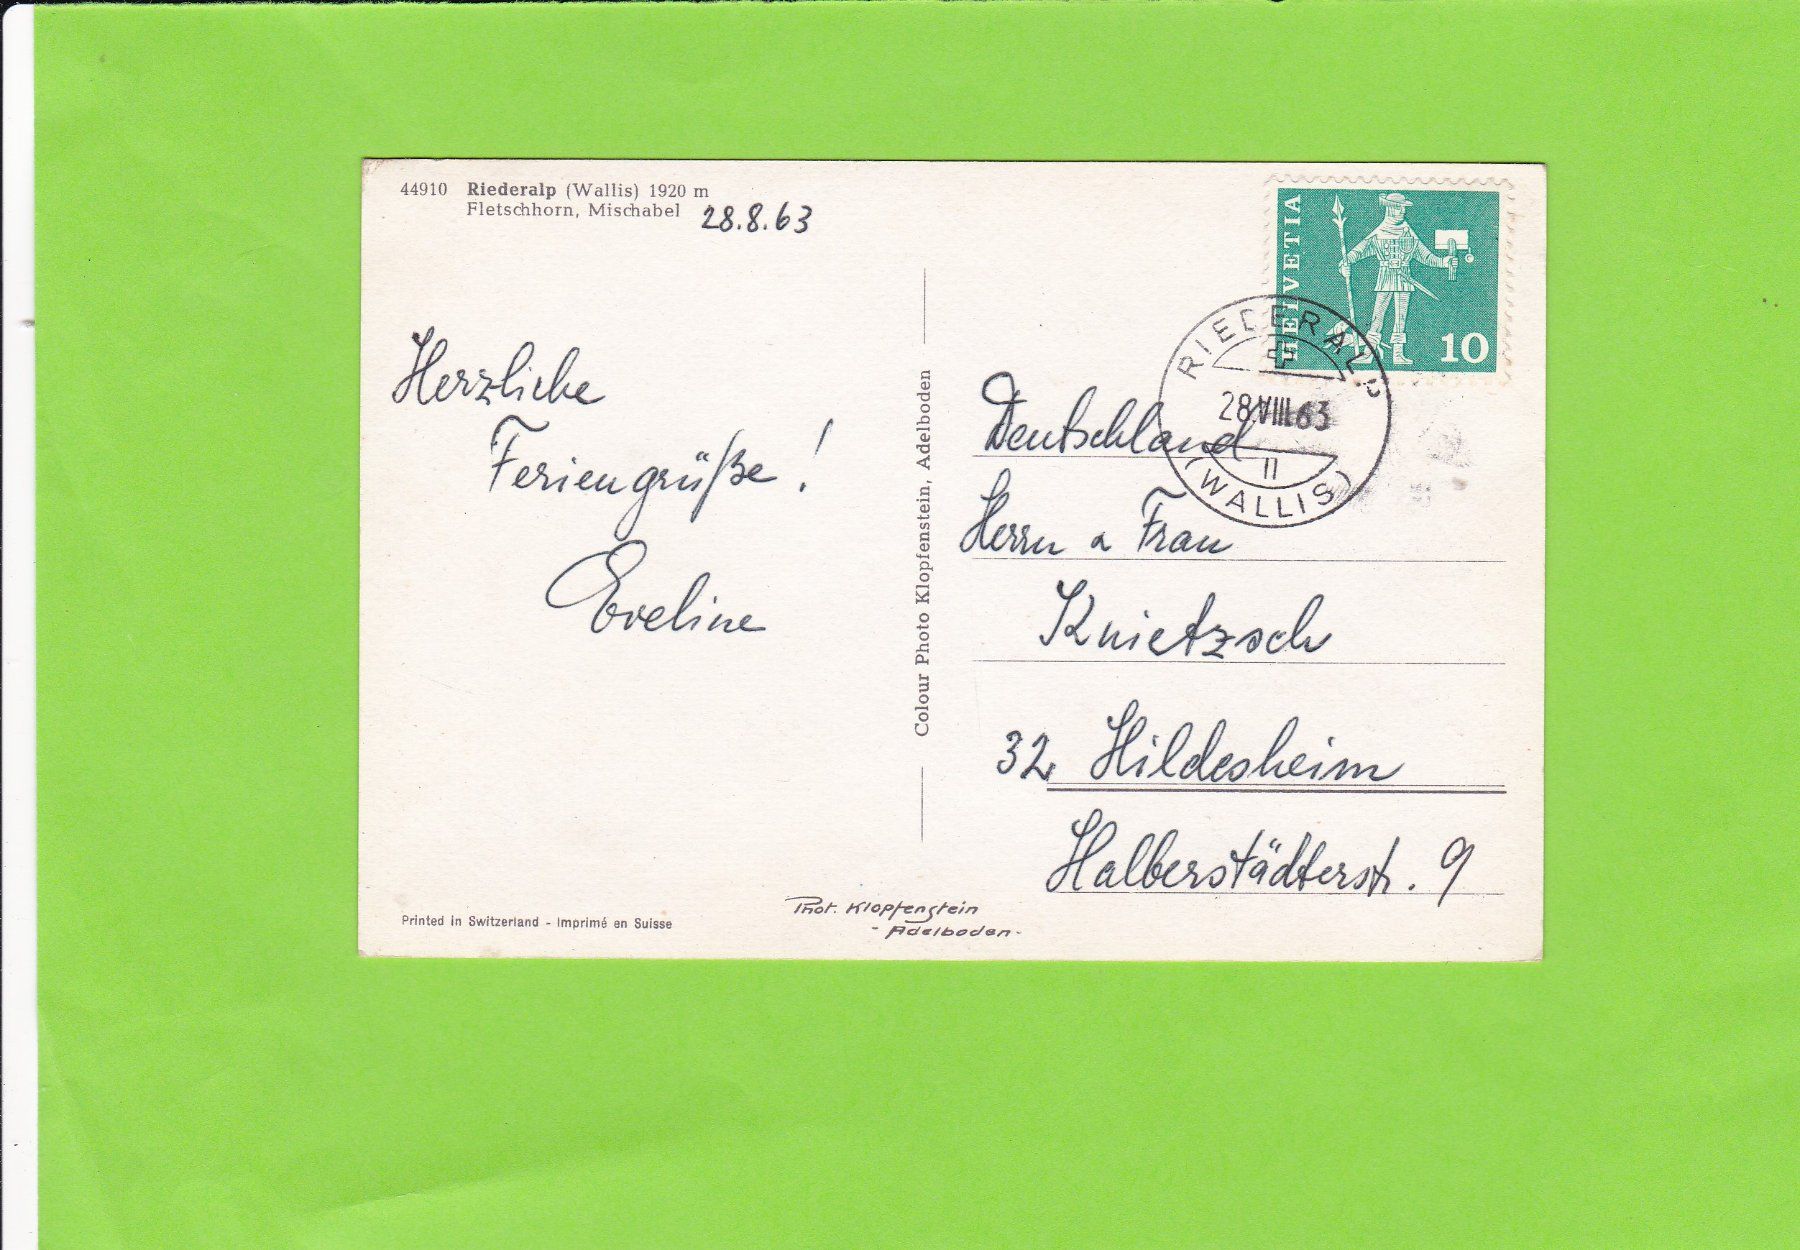 44910 Riederalp (Wallis) 1920 m
Fletschhorn, Mischabel
28.8.63
Herzliche
Feriengrüße!
Eveline
Printed in Switzerland - Imprimé en Suisse
Colour Photo Klopfenstein, Adelboden
Phot. Klopfenstein
- Adelboden -
HELVETIA
10
RIEDERALP
28.VIII.63
11
(WALLIS)
Deutschland
Herrn u Frau
Knietzsch
32 Hildesheim
Halberstädterstr. 9